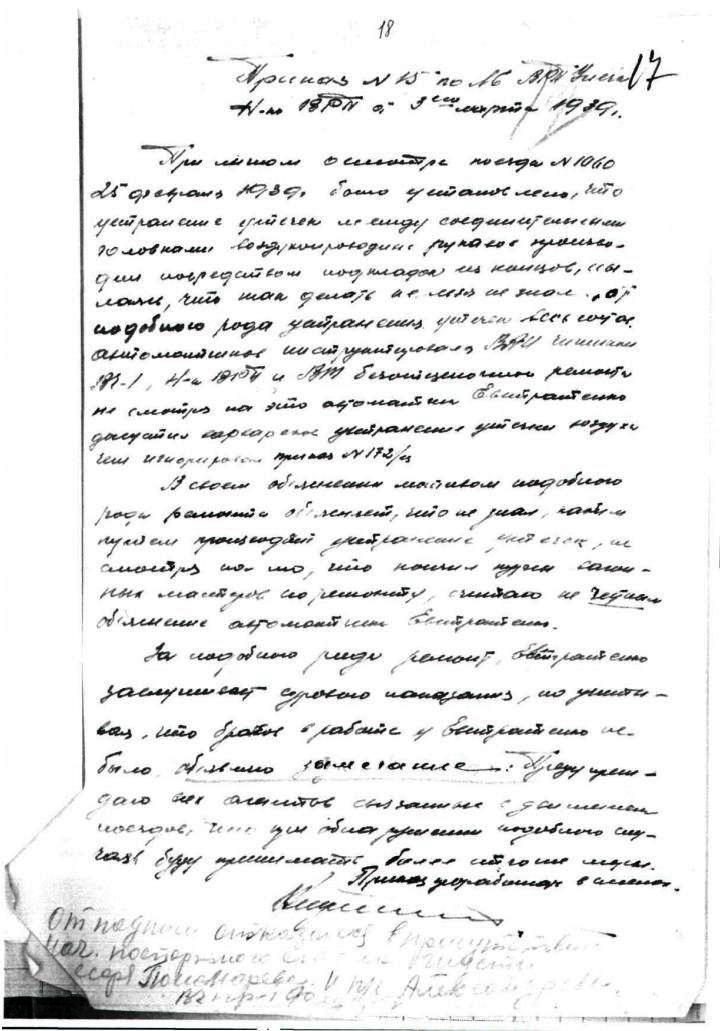 18
17
Приказ N 15 по
18 от 3 марта 1939г.
При личном осмотре поезда N 1060
25 февраля 1939г было установлено, что
устранение утечек между соединительными
головками воздухопроводных рукавов произво-
дил посредством подкладок из концов, ссы-
лаясь, что так делать не знал. от
подобного рода устранения утечек весь
автоматчиков инструктировал
ВЧ-1, и безотцепочного ремонта
не смотря на это автоматчик Евстратенко
допустил варварское устранение утечки воздуха
чем игнорировал приказ N 172/ц
В своем объяснении мотивом подобного
рода ремонта объясняет, что не знал, каким
путем производят устранение утечек, не
смотря на то, что кончил курсы
мастеров по ремонту, считаю не честным
объяснение автоматчика Евстратенко.
За подобного рода ремонт, Евстратенко
заслуживает сурового наказания, но учиты-
вая, что браков в работе у Евстратенко не-
было, объявляю замечание. Предупреж-
даю всех агентов связанных с движением
поездов, что при обнаружении подобного слу-
чая буду принимать более строгие меры.
Приказ проработать в
От подписи отказался в присутствии
нач.
Пономарева и Александрова